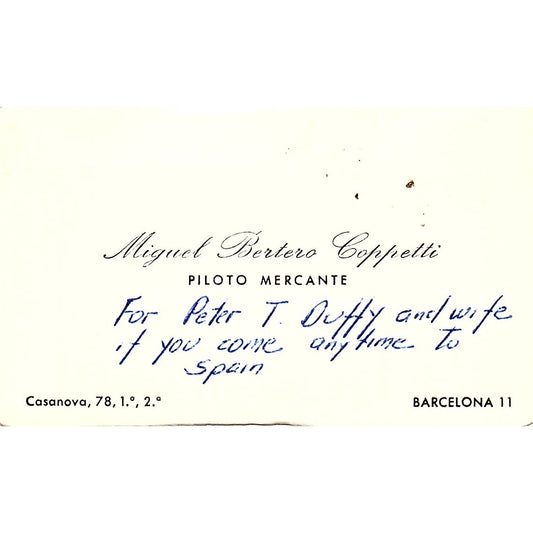 Miguel Bertero Coppetti
PILOTO MERCANTE
For Peter T. Duffy and wife
if you come anytime to
Spain
Casanova, 78, 1.º, 2.ª BARCELONA 11